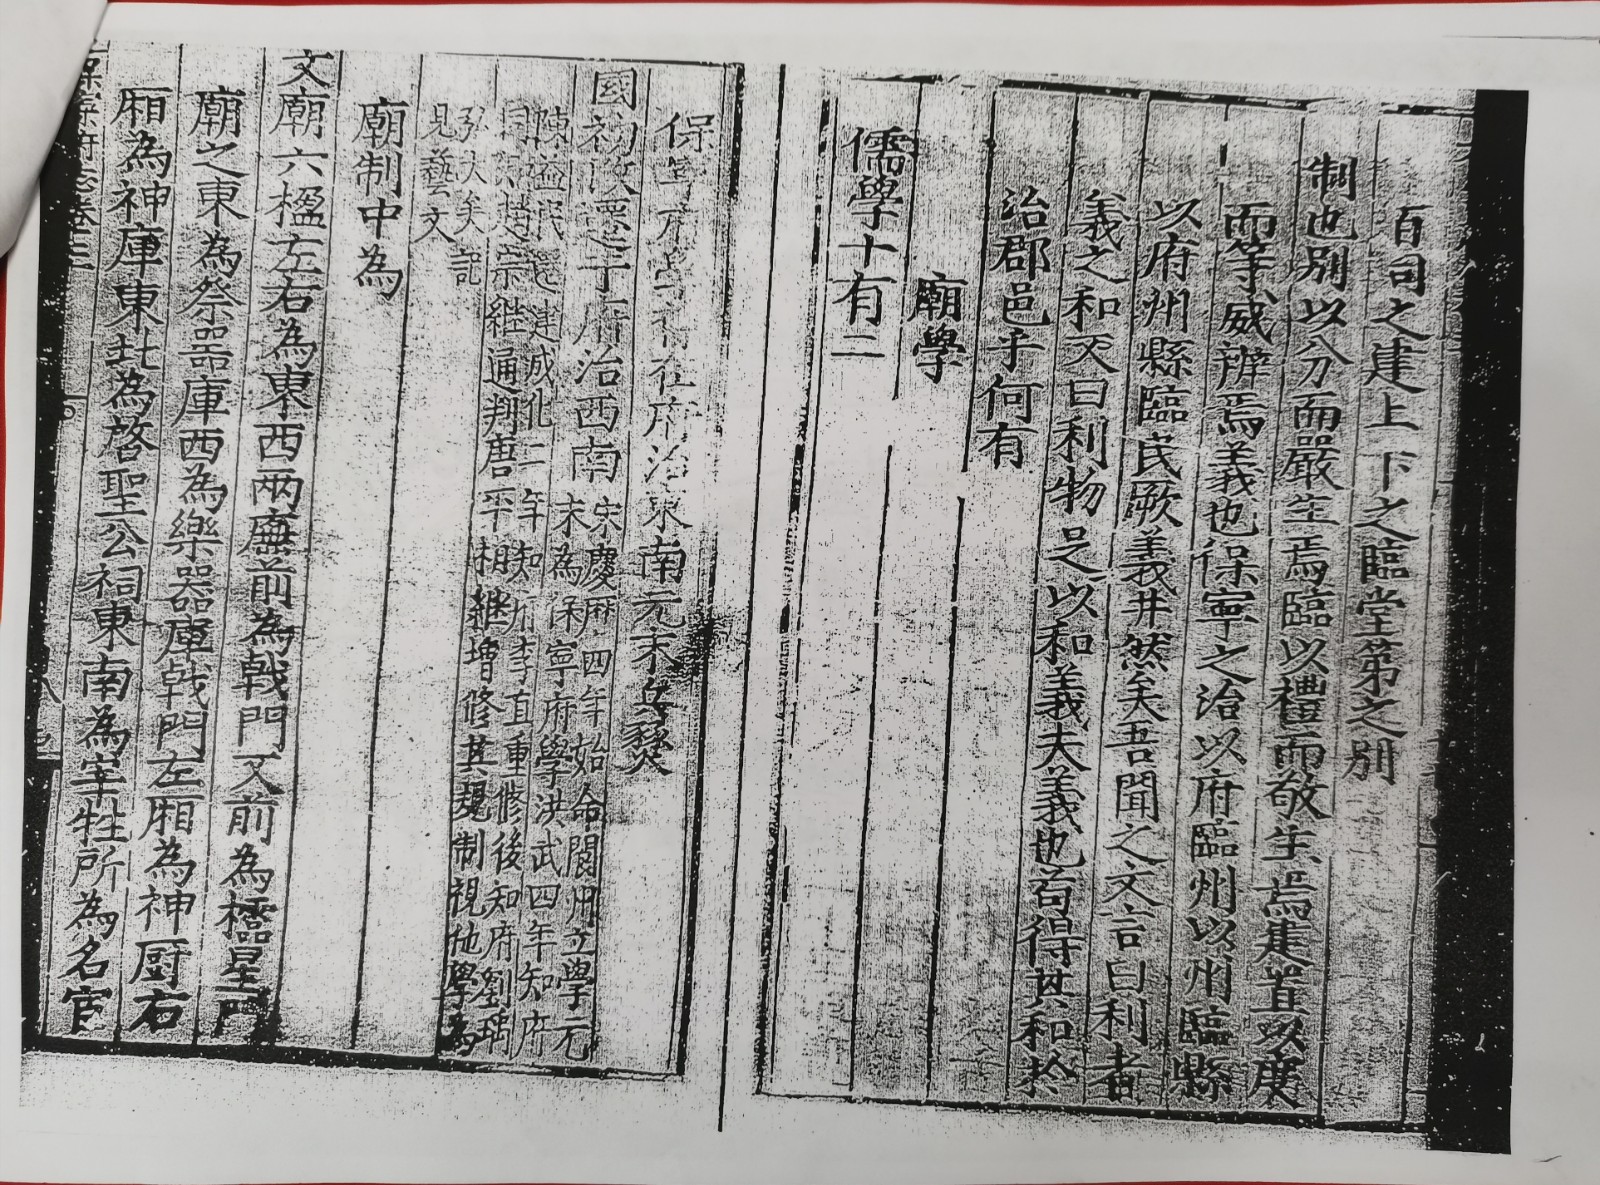 百司之建上下之臨堂第之別
制也別以分而嚴生焉臨以禮而敬生焉建置以廣
而等威辨焉義也保寧之治以府臨州以州臨縣
以府州縣臨民厥義井然矣吾聞之文言曰利者
義之和又曰利物足以和義夫義也苟得其和於
治郡邑乎何有
廟學
儒學十有二
保寧府學在府治東南元末兵燹
國初改遷于府治西南
宋慶曆四年始命閬州立學元
末為保寧府學洪武四年知府
遷建成化二年知府李直重修後知府劉
通判唐平相繼增修其規制視他學為
記
見藝文
廟制中為
文廟六楹左右為東西兩廡前為戟門又前為櫺星門
廟之東為祭器庫西為樂器庫戟門左廂為神厨右
廂為神庫東北為啓聖公祠東南為宰牲所為名宦
保寧府志卷三